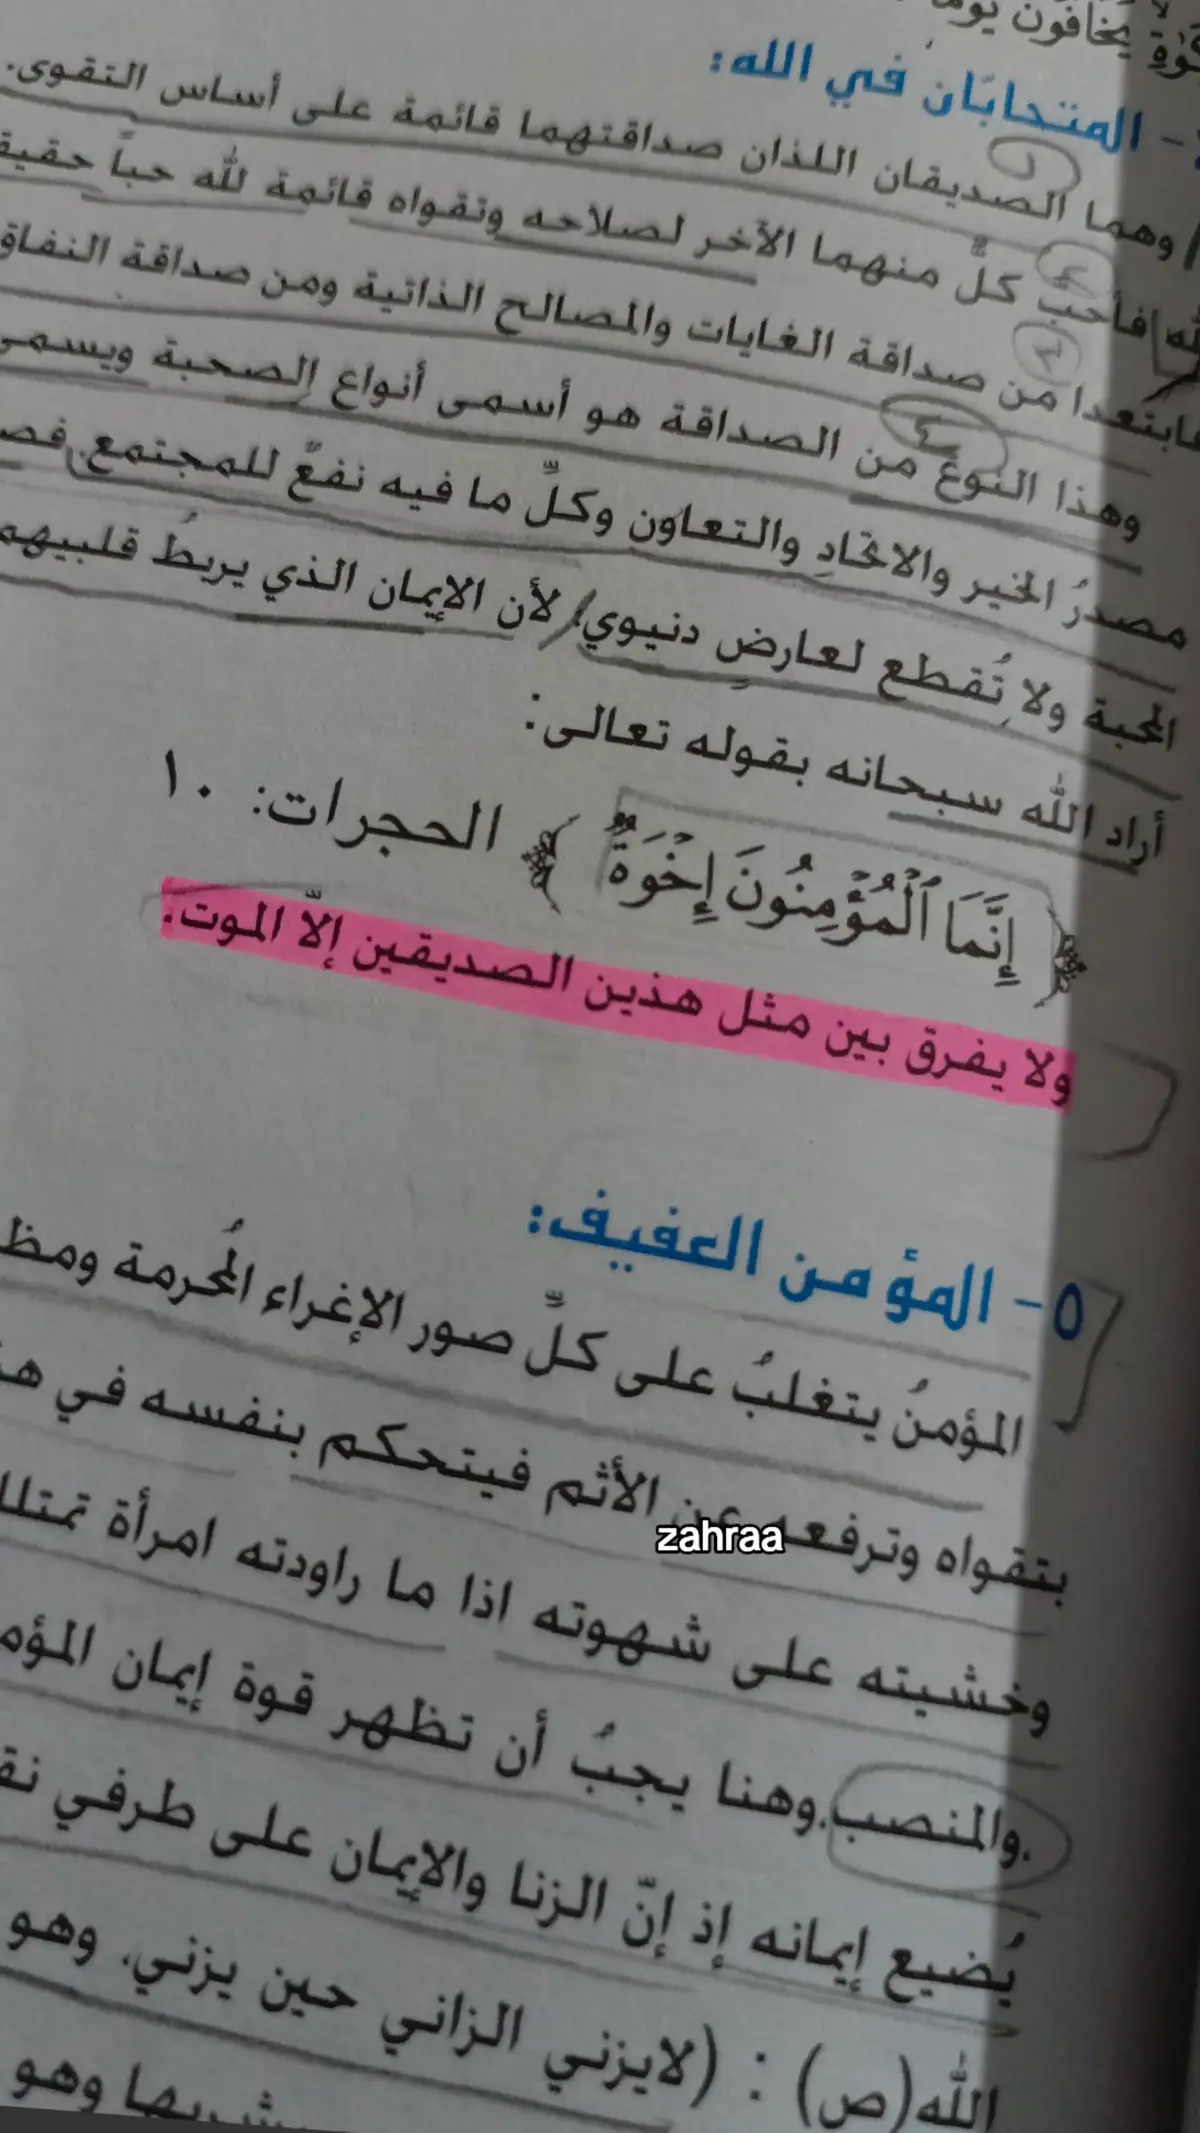 يخافون يوما
- المتحابّان في الله:
وهما الصديقان اللذان صداقتهما قائمة على أساس التقوى.
فأحبّ كلٌّ منهما الآخر لصلاحه وتقواه قائمة لله حباً
فابتعدا من صداقة الغايات والمصالح الذاتية ومن صداقة النفاق
وهذا النوعُ من الصداقة هو أسمى أنواع الصحبة ويسمى
مصدرُ الخير والاتحادِ والتعاون وكلِّ ما فيه نفعٌ للمجتمع.
المحبة ولا تُقطع لعارضٍ دنيوي، لأن الايمان الذي يربطُ
أراد الله سبحانه بقوله تعالى:
﴿ إِنَّمَا ٱلْمُؤْمِنُونَ إِخْوَةٌ ﴾ الحجرات: ١٠
ولا يفرق بين مثل هذين الصديقين إلاّ الموت.
٥- المؤمن العفيف:
المؤمنُ يتغلبُ على كلِّ صور الإغراء المُحرمة
بتقواه وترفعه عن الأثم فيتحكم بنفسه في
zahraa
وخشيته على شهوته اذا ما راودته امرأة
والمنصب.وهنا يجبُ أن تظهر قوة إيمان
يُضيع إيمانه إذ إنّ الزنا والايمان على طرفي
الله(ص) : (لايزني الزاني حين يزني. وهو
يشربها وهو